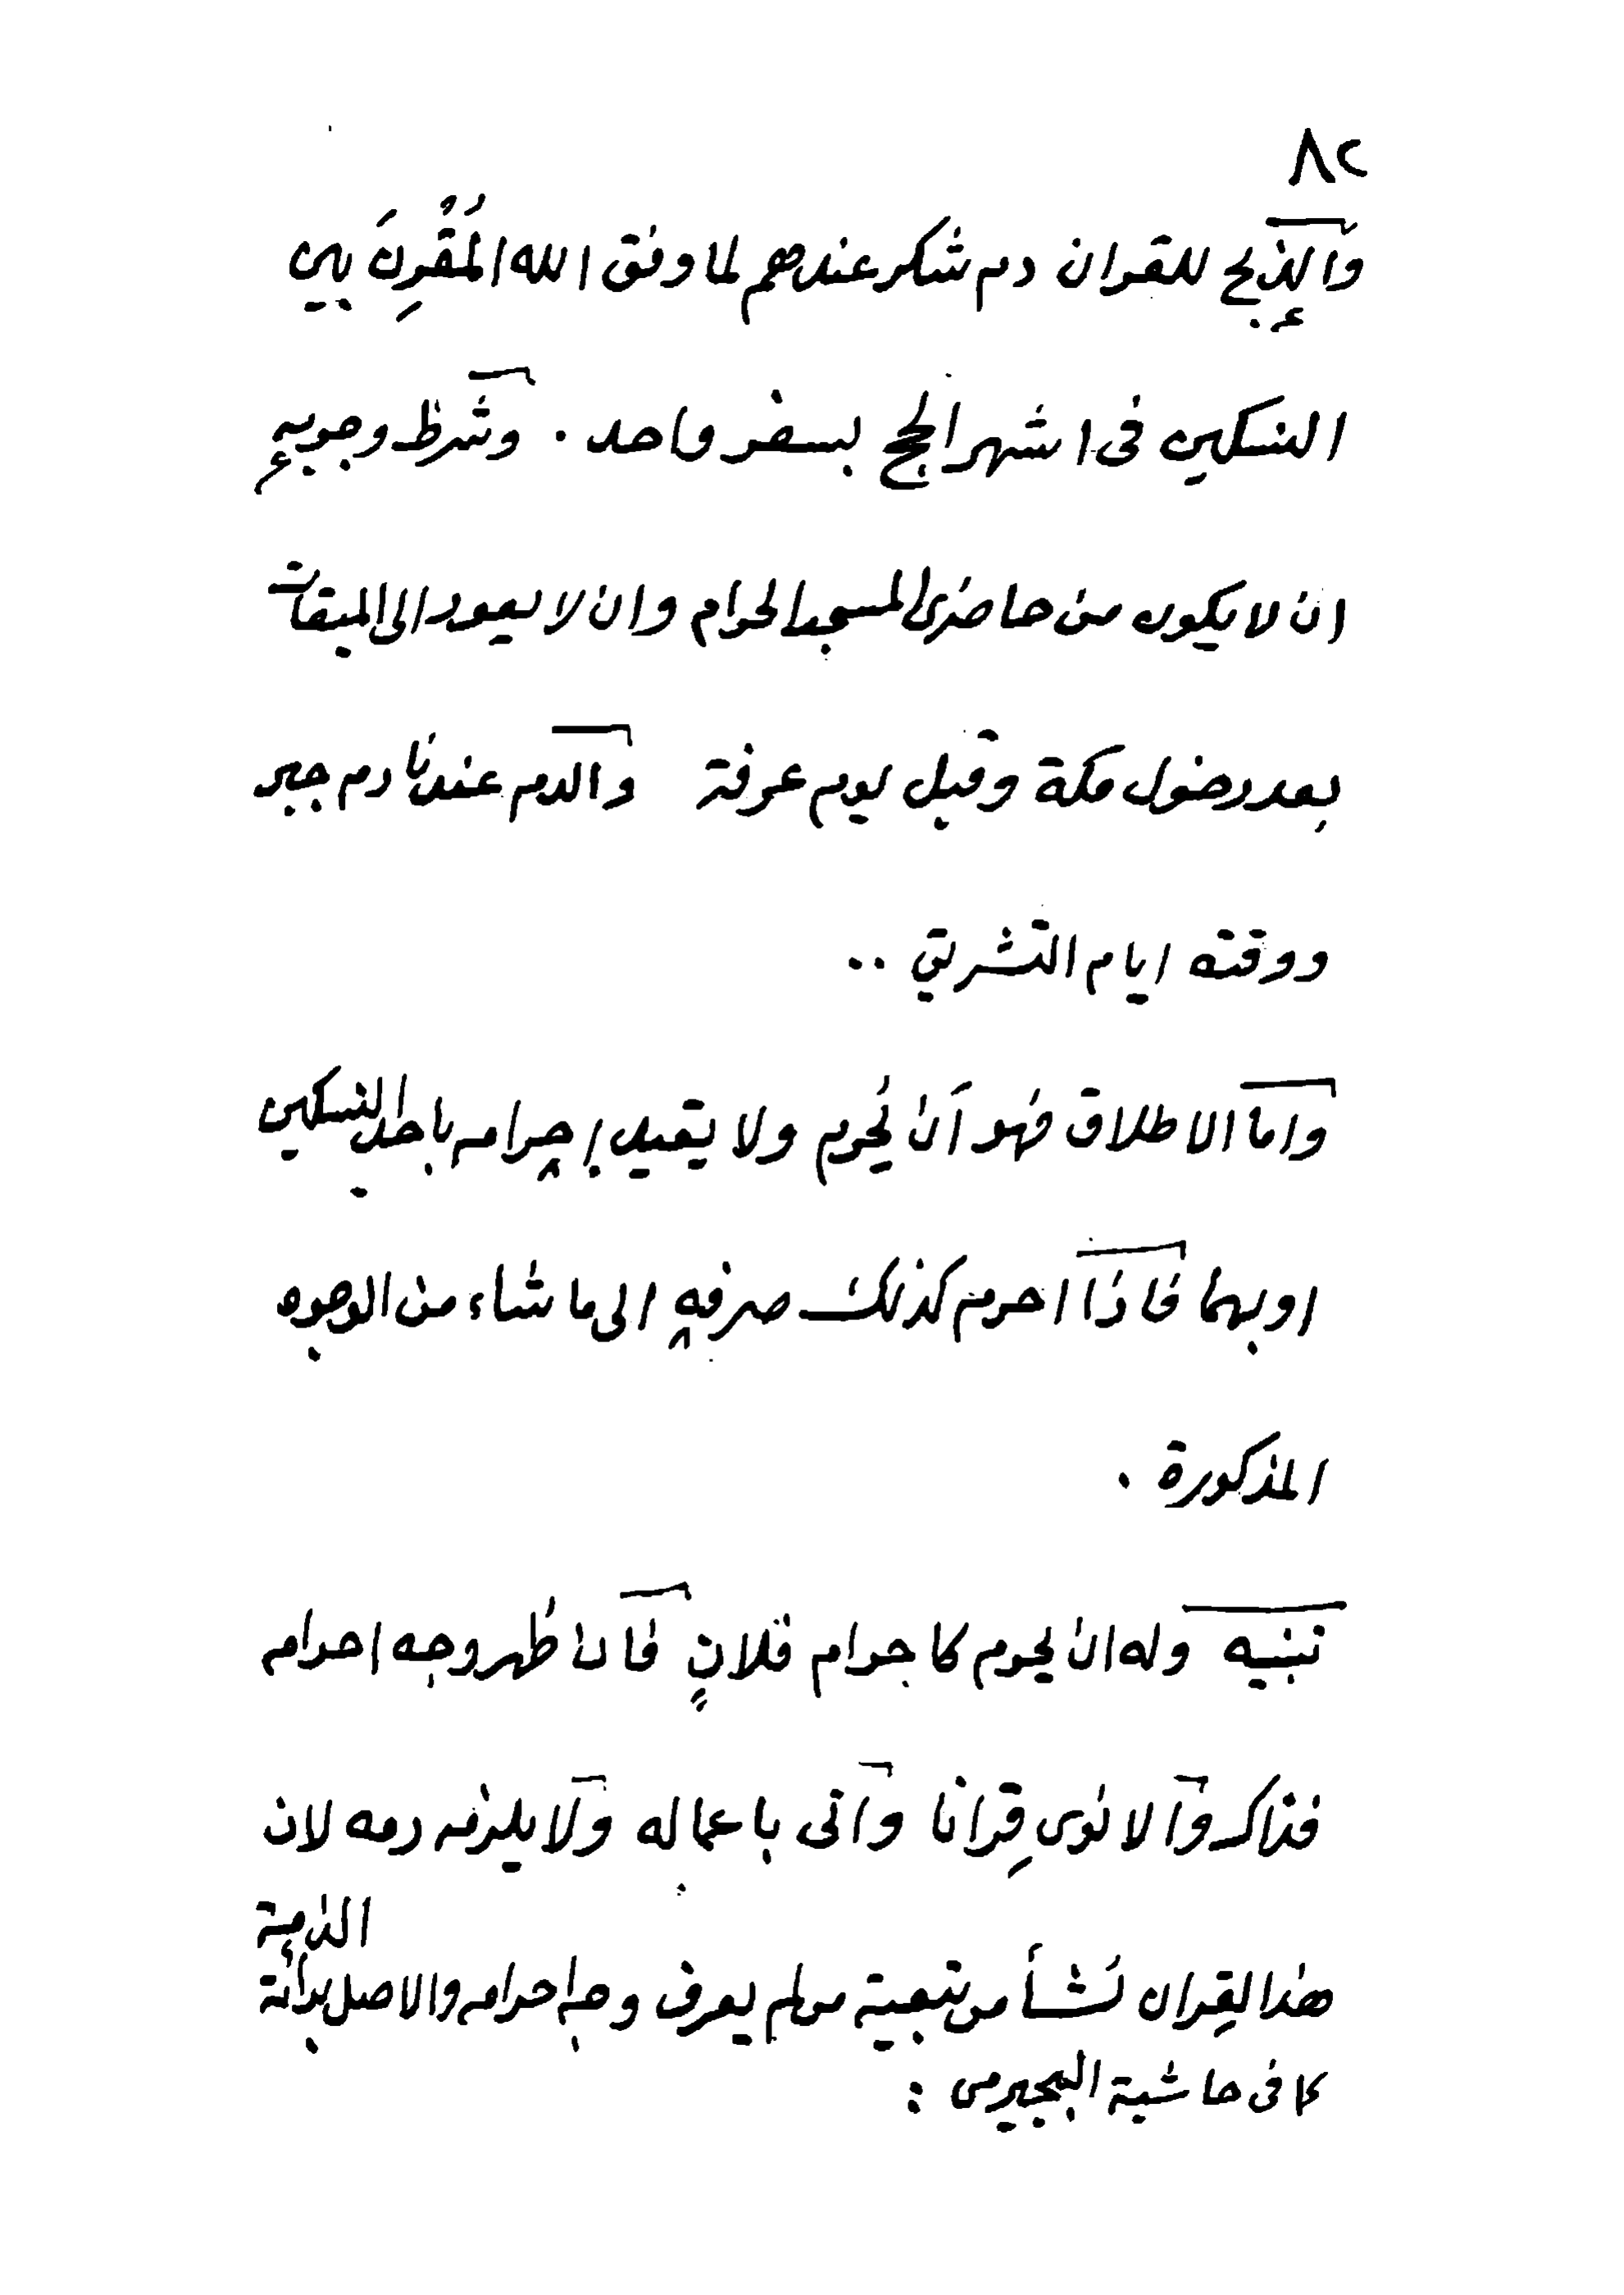 ٨٢
وَالذبح للقران دم شكر عندهم لما وفق الله المُقْرِنَ بين
النسكين فى اشهر الحج بسفر واحد . وشرط وجوبهِ
ان لا يكون من حاضرى المسجد الحرام وان لا يعود الى الميقات
بعد دخول مكة وقبل يوم عرفة والدم عندنا دم جبر
ووقته ايام التشريق ..
واما الاطلاق فهو أن يُحرم ولا يقيد إحرامه باحد النسكين
او بهما فاذا احرم كذلك صرفه الى ما شاء من الوجوه
المذكورة .
تنبيه وله ان يحرم كاحرام فلانٍ فان ظهر وجه احرامه
فذاك وَالا نوى قِرانا وَاتى باعماله وَلا يلزمه دمه لان
هذا القِران نَشأ من تبعية من لم يعرف وجه احرامه والاصل برائة الذمة
كما فى حاشية البجيرمى :